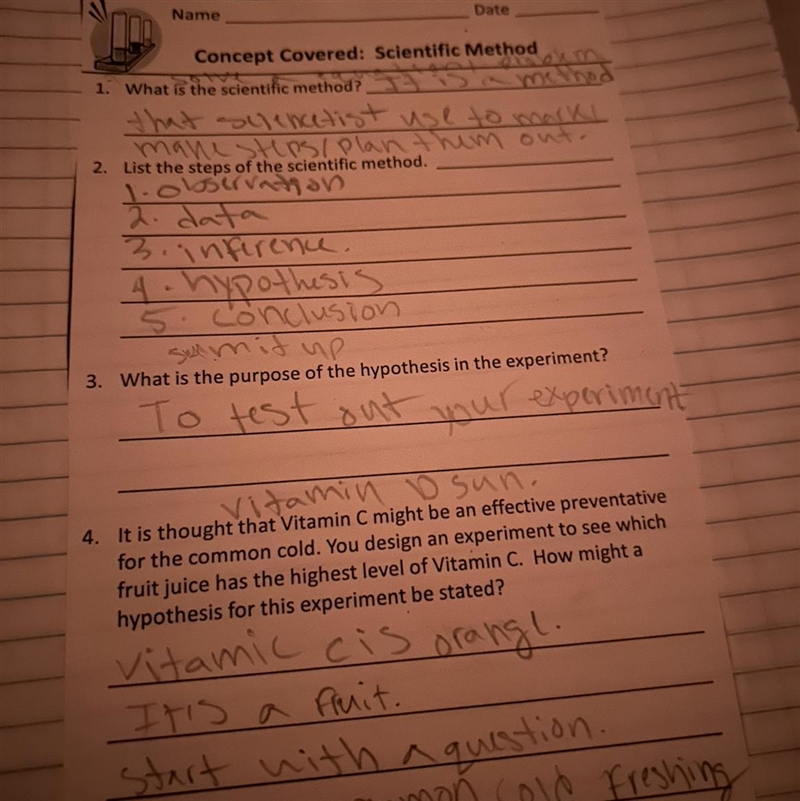 Name Date
Concept Covered: Scientific Method
solve a problem
1. What is the scientific method? It is a method
that sciencetist use to
make steps/plan them out.
2. List the steps of the scientific method.
1. observation
2. data
3. inference.
4. hypothesis
5. conclusion
sum it up
3. What is the purpose of the hypothesis in the experiment?
To test out your experiment
Vitamin D sun.
4. It is thought that Vitamin C might be an effective preventative
for the common cold. You design an experiment to see which
fruit juice has the highest level of Vitamin C. How might a
hypothesis for this experiment be stated?
Vitamic c is orange.
It is a fruit.
Start with a question.
cold freshing